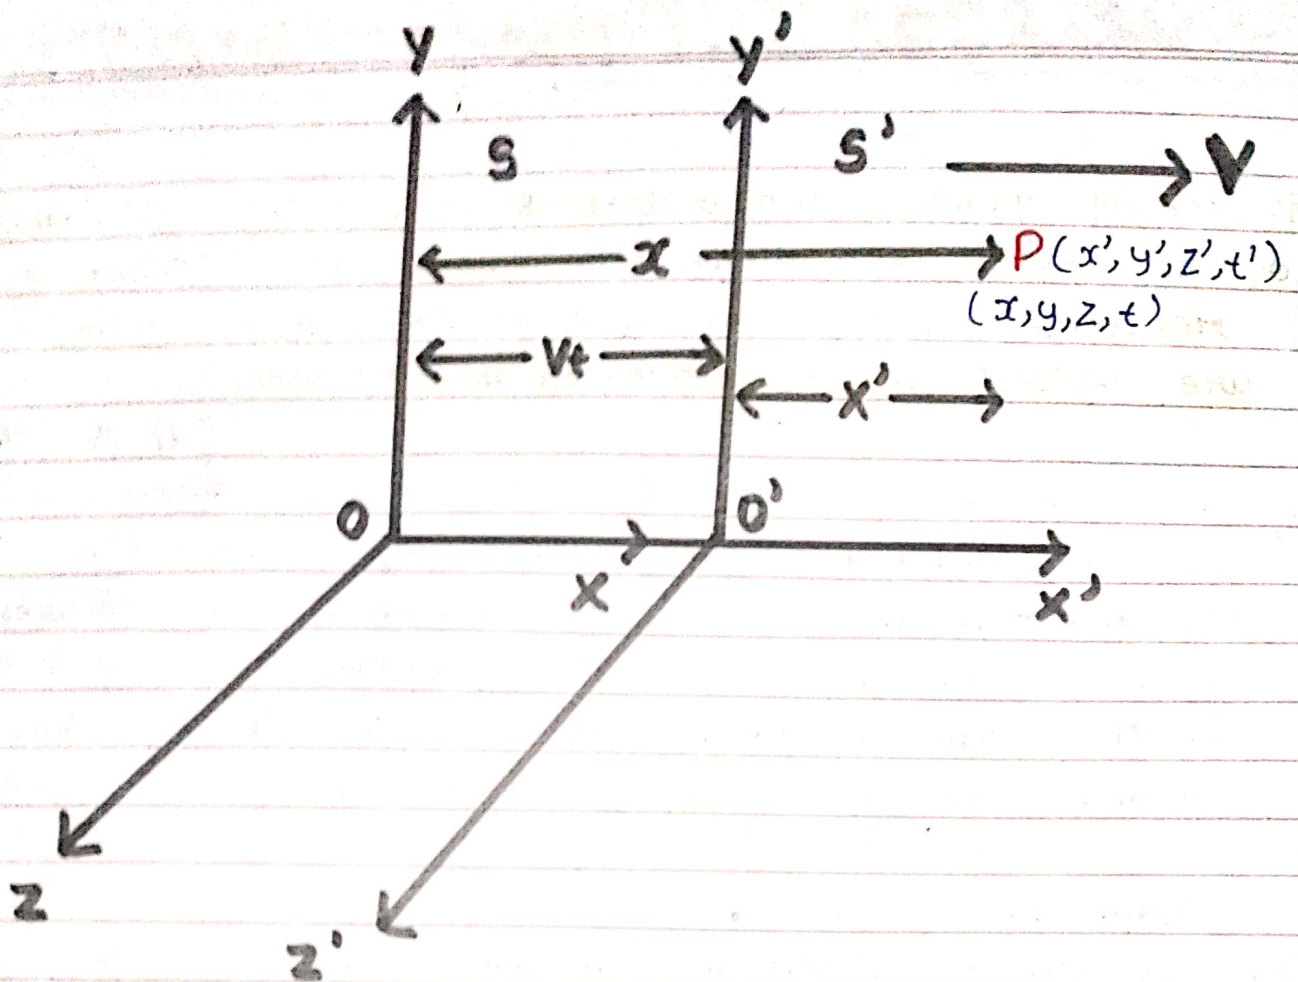 Y
Y'
S
S'
V
x
P(x', y', z', t')
(x, y, z, t)
Vt
x'
O
O'
X
X'
Z
Z'